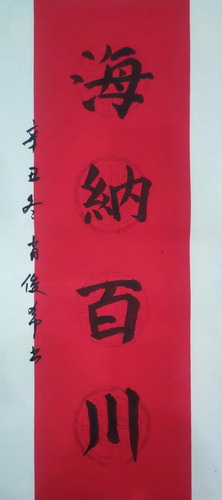 海納百川
辛丑冬肖俊希书